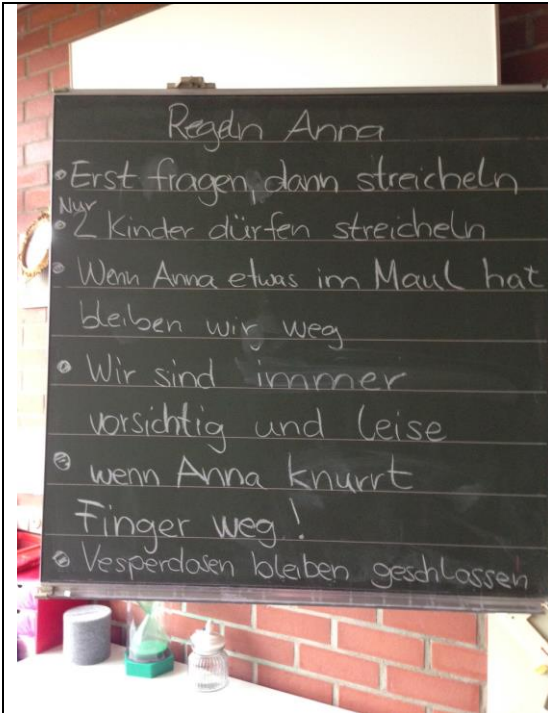 Regeln Anna
• Erst fragen, dann streicheln
Nur
• 2 Kinder dürfen streicheln
• Wenn Anna etwas im Maul hat
bleiben wir weg
• Wir sind immer
vorsichtig und leise
• wenn Anna knurrt
Finger weg!
• Vesperdosen bleiben geschlossen